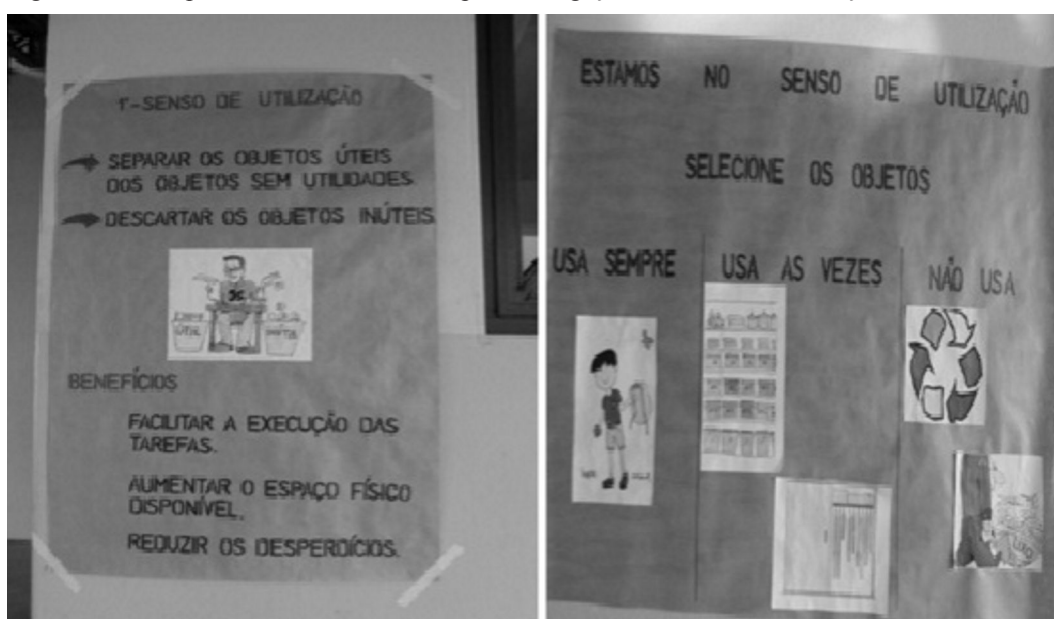 1º-SENSO DE UTILIZAÇÃO
SEPARAR OS OBJETOS ÚTEIS
DOS OBJETOS SEM UTILIDADES.
DESCARTAR OS OBJETOS INÚTEIS.
ÚTIL
INÚTIL
BENEFÍCIOS
FACILITAR A EXECUÇÃO DAS
TAREFAS.
AUMENTAR O ESPAÇO FÍSICO
DISPONÍVEL.
REDUZIR OS DESPERDÍCIOS.
ESTAMOS NO SENSO DE UTILIZAÇÃO
SELECIONE OS OBJETOS
USA SEMPRE
USA AS VEZES
NÃO USA